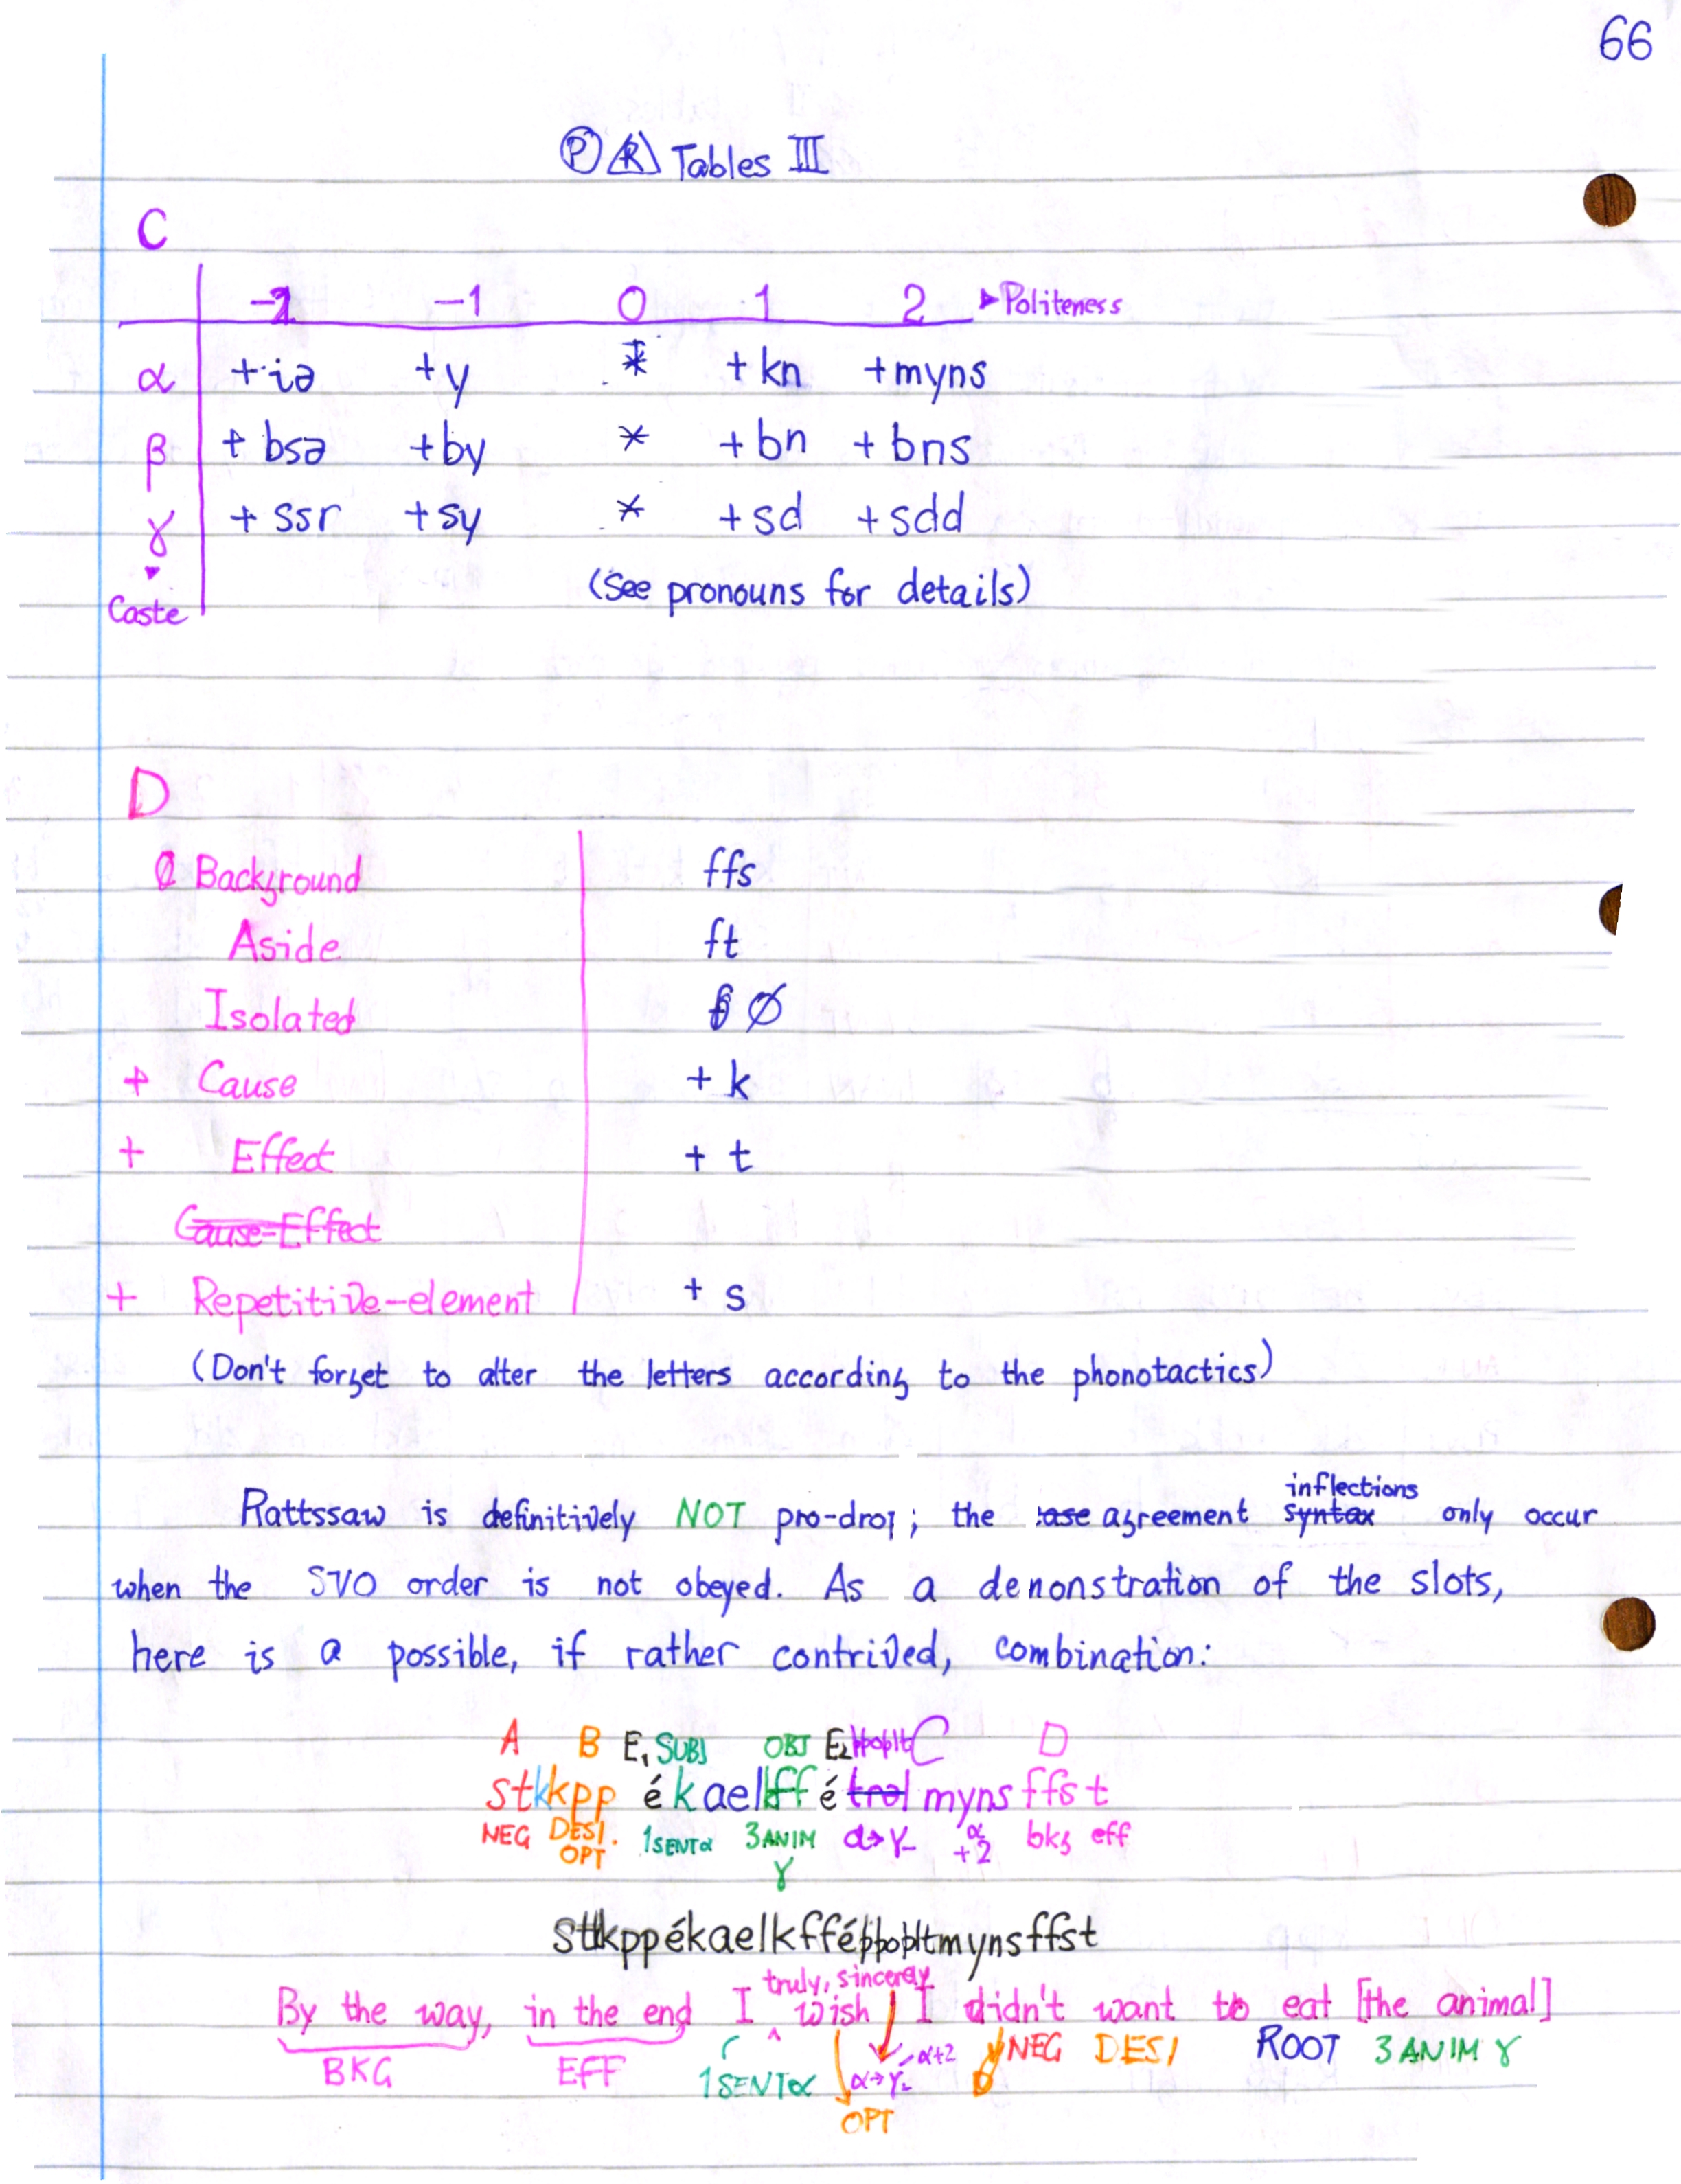 66
Ⓟ R Tables III
C
-2 -1 0 1 2 ▸Politeness
α +iə +y * +kn +myns
β +bsə +by * +bn +bns
γ +ssr +sy * +sd +sdd
Caste
(See pronouns for details)
D
Background ffs
Aside ft
Isolated ∅
+ Cause + k
+ Effect + t
Cause-Effect
+ Repetitive-element + s
(Don't forget to alter the letters according to the phonotactics)
inflections
Rattssaw is definitively NOT pro-drop; the case agreement syntax only occur
when the SVO order is not obeyed. As a demonstration of the slots,
here is a possible, if rather contrived, combination:
A B E₁ SUBJ OBJ E₂ C D
stkkpp é kael é myns ffs t
NEG DESI. 1SENTα 3ANIM α→γ- α bkg eff
OPT γ +2
sttkppékaelkfféþþopltmynsffst
truly, sincerely
By the way, in the end I wish I didn't want to eat [the animal]
BKG EFF 1SENTα α→γ- α+2 NEG DESI ROOT 3ANIM γ
OPT